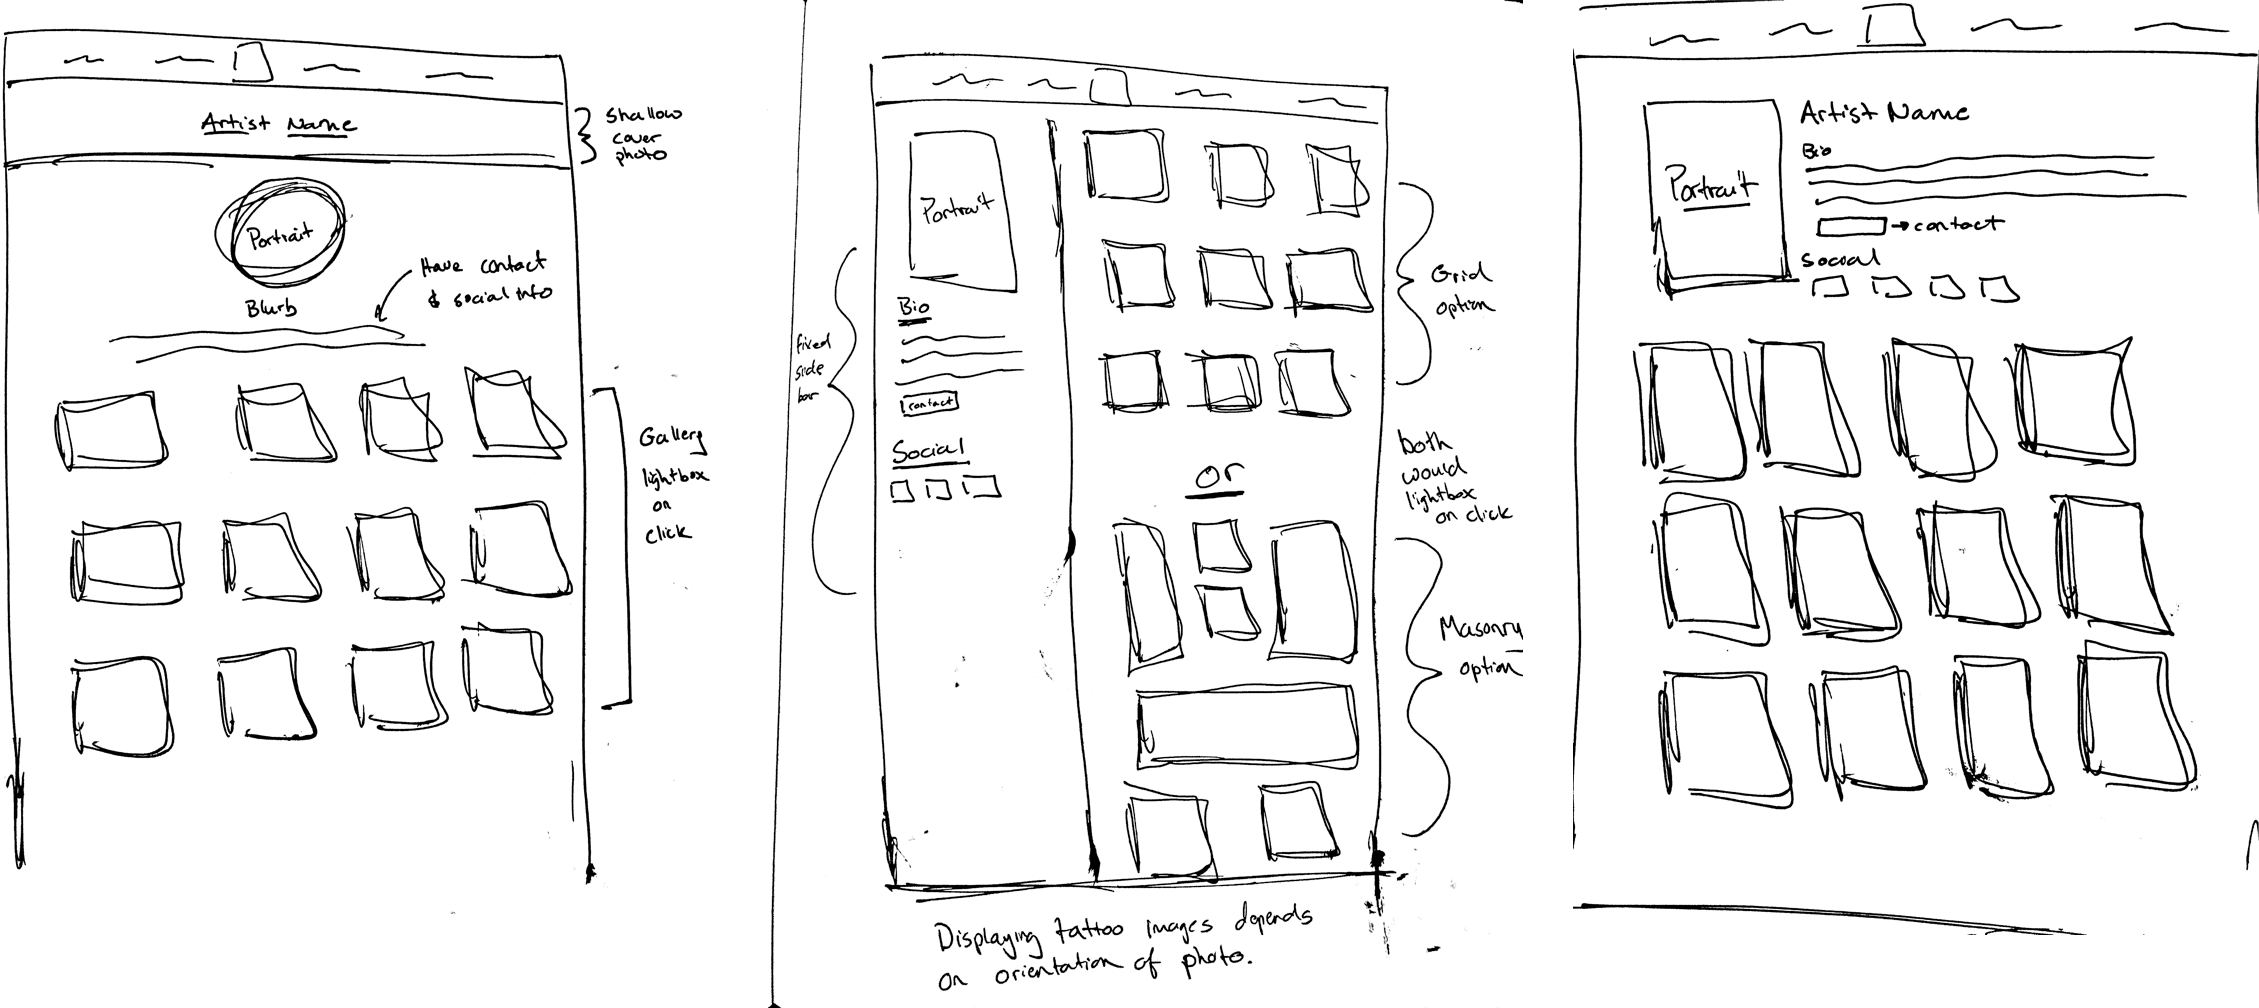 Artist Name
shallow
cover
photo
Portrait
Have contact
& social info
Blurb
Gallery
lightbox
on
click
Portrait
Bio
contact
Social
fixed
side
bar
Grid
option
or
both
would
lightbox
on click
Masonry
option
Displaying tattoo images depends
on orientation of photo.
Portrait
Artist Name
Bio
→ contact
Social